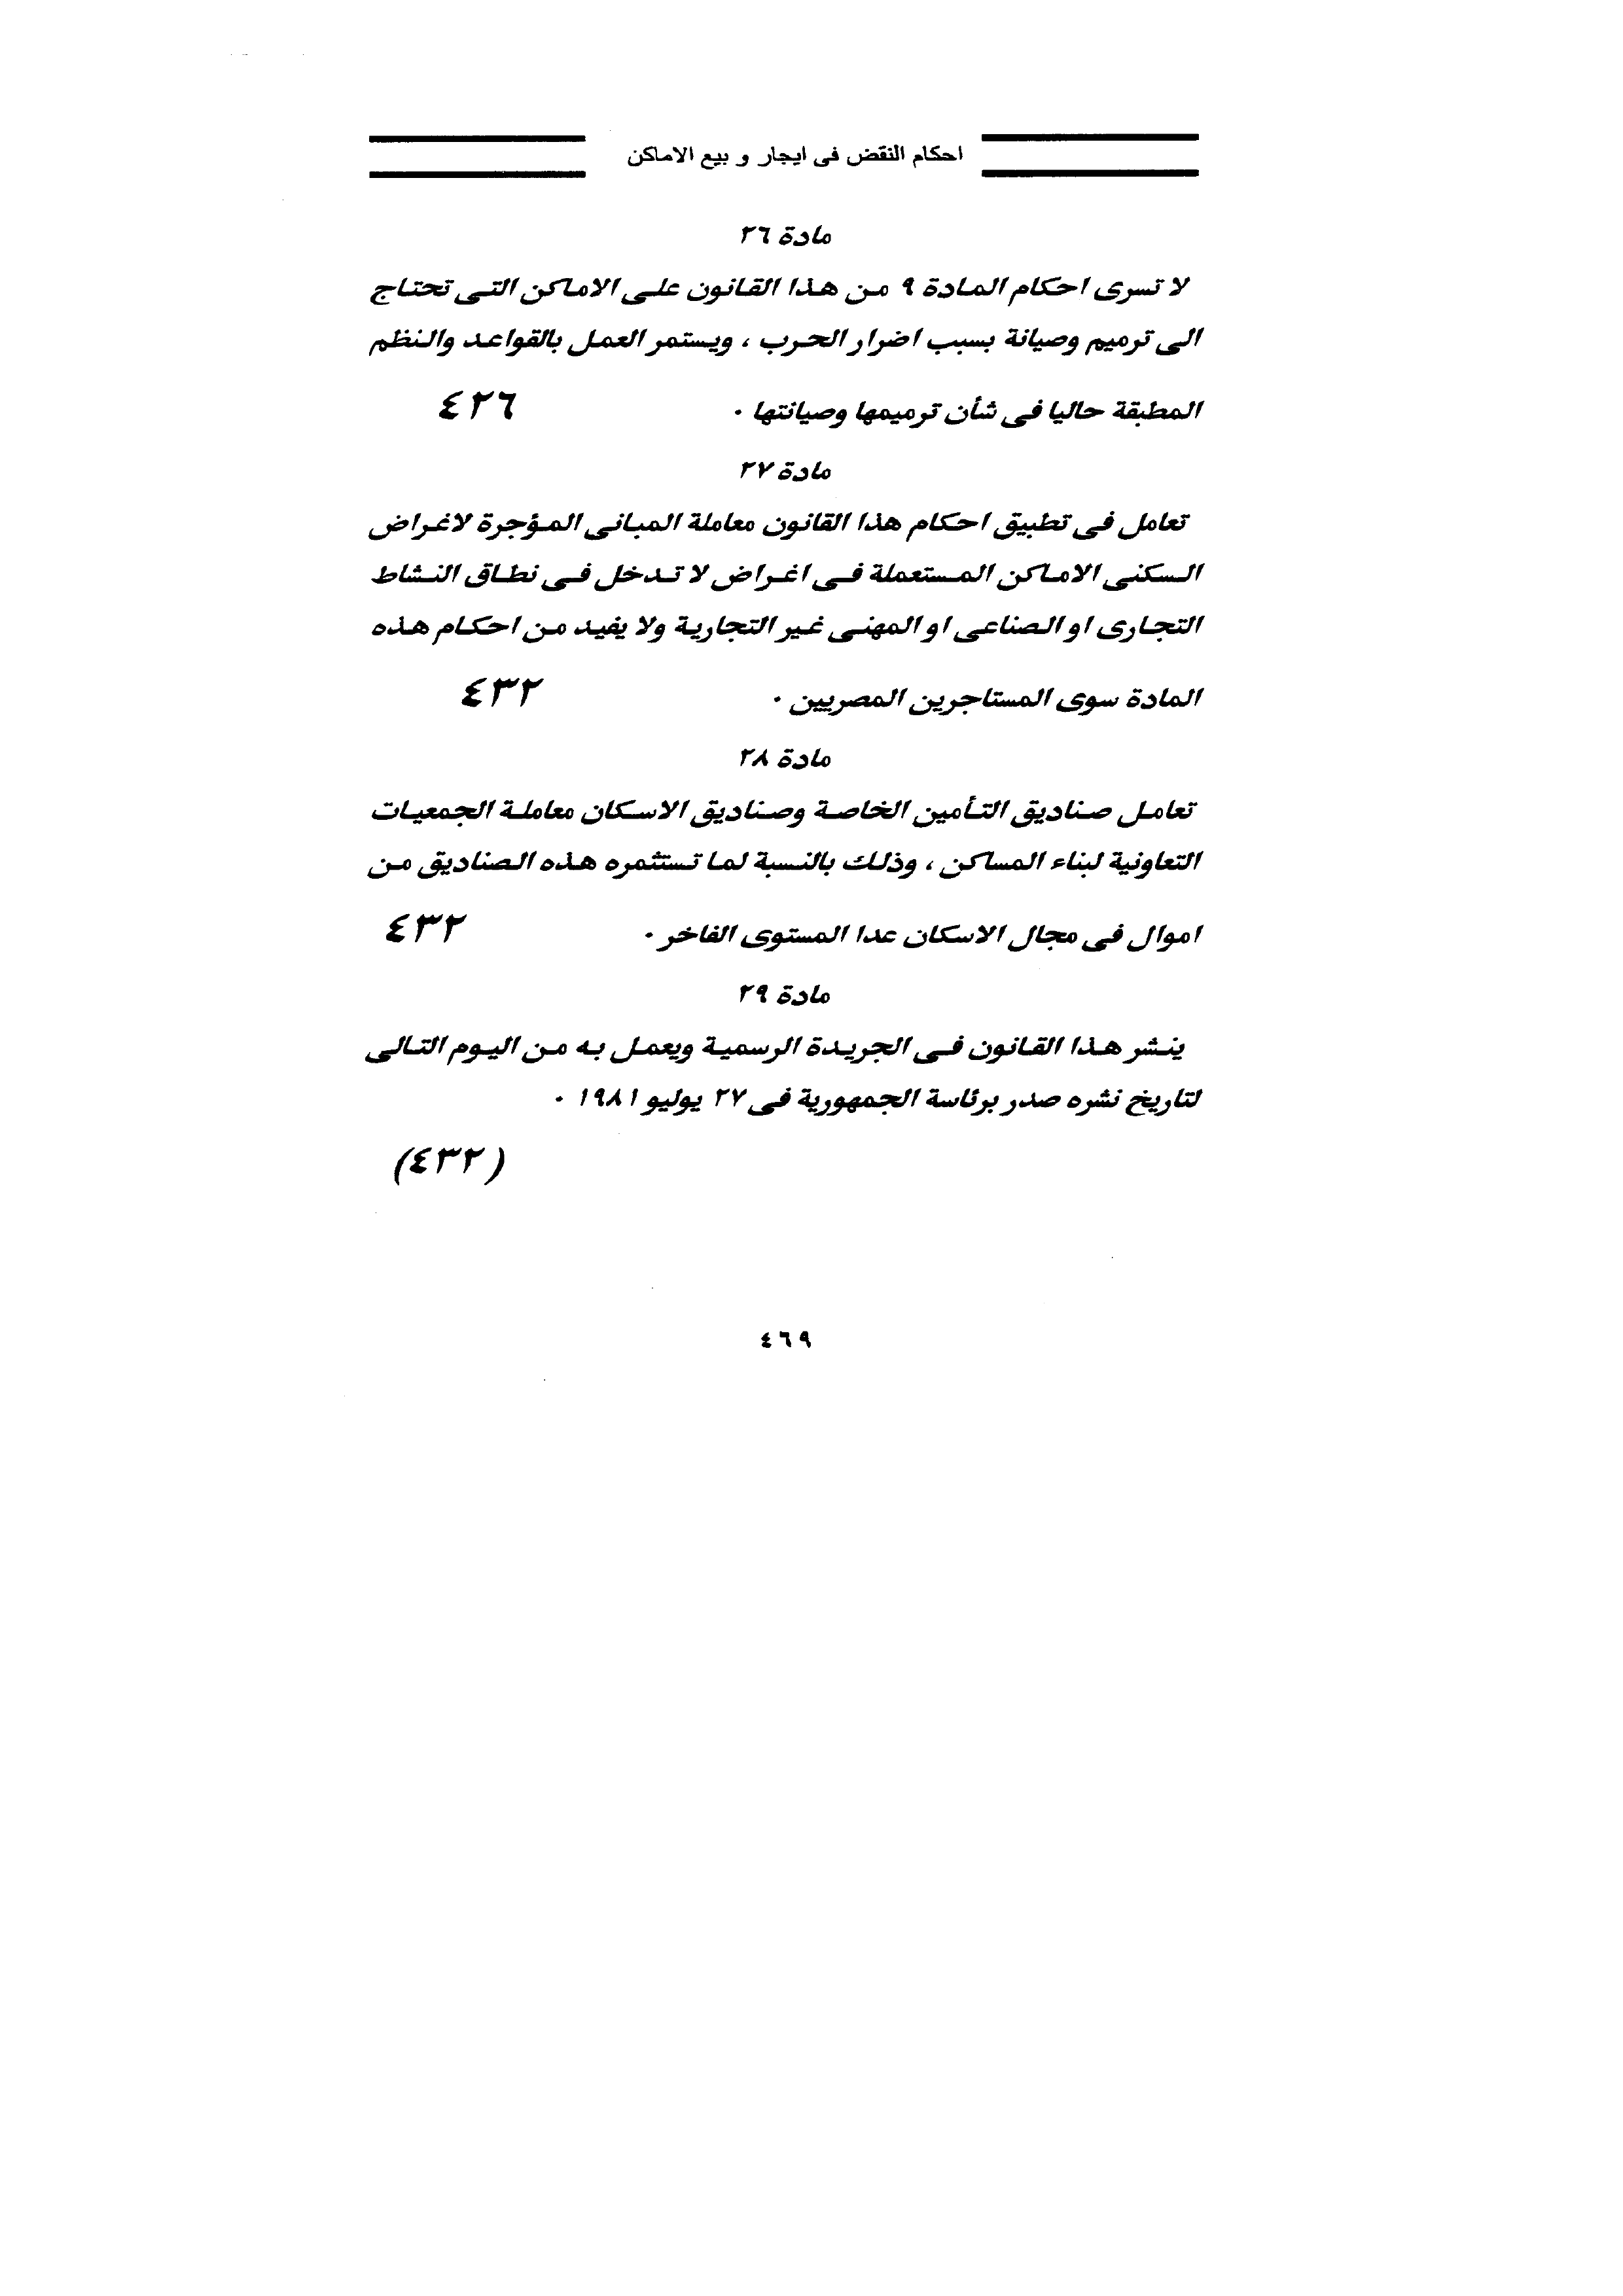 احكام النقض فى ايجار و بيع الاماكن
مادة ٢٦
لا تسرى احكام المادة ٩ من هذا القانون على الاماكن التى تحتاج
الى ترميم وصيانة بسبب اضرار الحرب ، ويستمر العمل بالقواعد والنظم
المطبقة حاليا فى شأن ترميمها وصيانتها ٠ ٤٢٦
مادة ٢٧
تعامل فى تطبيق احكام هذا القانون معاملة المبانى المؤجرة لاغراض
السكنى الاماكن المستعملة فى اغراض لا تدخل فى نطاق النشاط
التجارى او الصناعى او المهنى غير التجارية ولا يفيد من احكام هذه
المادة سوى المستاجرين المصريين ٠ ٤٣٢
مادة ٢٨
تعامل صناديق التأمين الخاصة وصناديق الاسكان معاملة الجمعيات
التعاونية لبناء المساكن ، وذلك بالنسبة لما تستثمره هذه الصناديق من
اموال فى مجال الاسكان عدا المستوى الفاخر ٠ ٤٣٢
مادة ٢٩
ينشر هذا القانون فى الجريدة الرسمية ويعمل به من اليوم التالى
لتاريخ نشره صدر برئاسة الجمهورية فى ٢٧ يوليو ١٩٨١ ٠
(٤٣٢)
٤٦٩